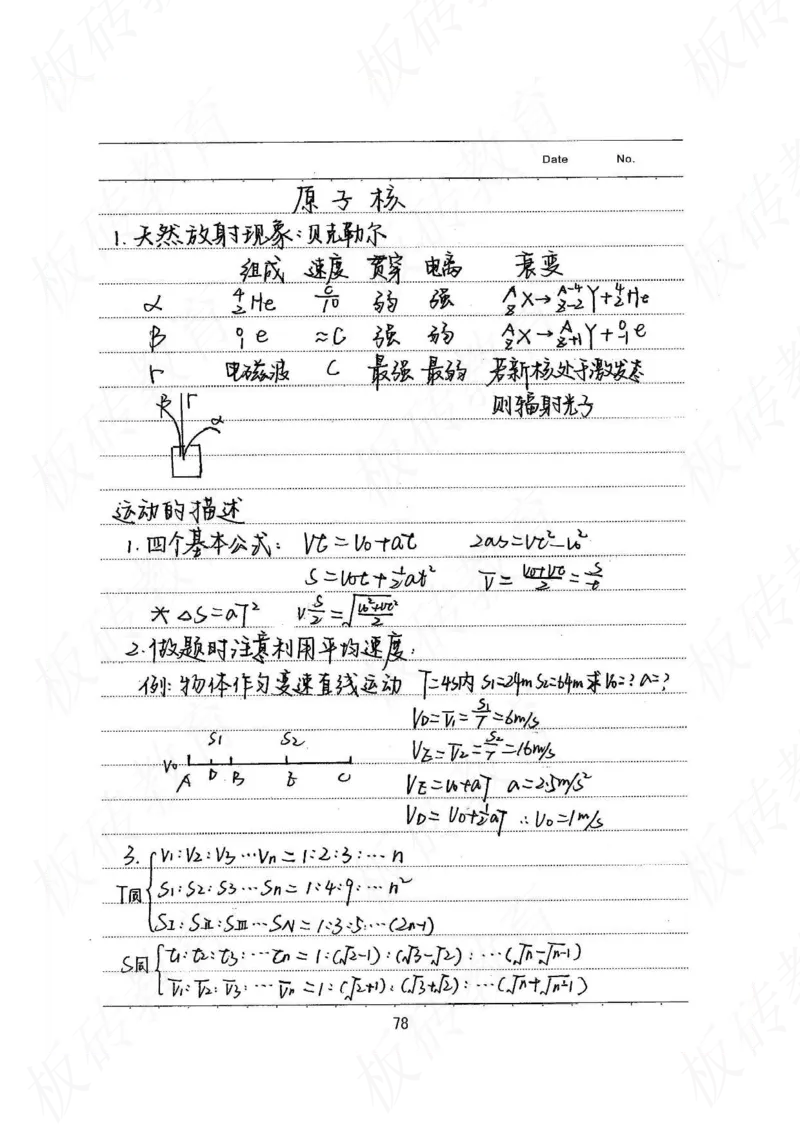 Date No.
原子核
1. 天然放射现象：贝克勒尔
组成 速度 贯穿 电离 衰变
α ⁴₂He c/10 弱 强 ᴬ_Z X → ᴬ⁻⁴_Z₋₂ Y + ⁴₂He
β ⁰₋₁e ≈C 强 弱 ᴬ_Z X → ᴬ_Z₊₁ Y + ⁰₋₁e
r 电磁波 C 最强 最弱 若新核处于激发态
则辐射光子
β r α
运动的描述
1. 四个基本公式： Vt = V₀ + at 2as = Vt² - V₀²
S = V₀t + ½at² V̄ = (V₀+Vt)/2 = S/t
* △S = aT² V_{S/2} = √((V₀²+Vt²)/2)
2. 做题时注意利用平均速度；
例：物体作匀变速直线运动 T=4s内 S₁=24m S₂=64m 求V₀=? a=?
V_D = V̄₁ = S₁/T = 6m/s
S₁ S₂
V_E = V̄₂ = S₂/T = 16m/s
V₀ A D B E C
V_E = V₀ + aT a = 2.5m/s²
V_D = V₀ + ½aT ∴ V₀ = 1m/s
3. V₁:V₂:V₃…Vn = 1:2:3:…n
T同 S₁:S₂:S₃…Sn = 1:4:9:…n²
SⅠ:SⅡ:SⅢ…SN = 1:3:5:…(2n-1)
S同 t₁:t₂:t₃:…tn = 1:(√2-1):(√3-√2):…(√n-√n-1)
V̄₁:V̄₂:V̄₃:…V̄n = 1:(√2+1):(√3+√2):…(√n+√n-1)
78
板砖教育